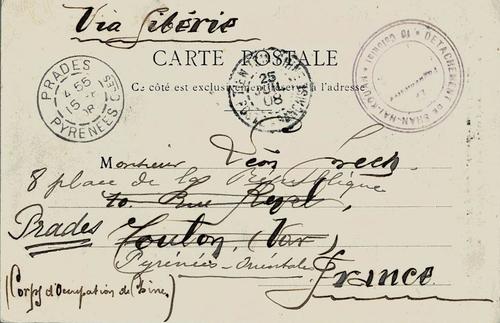 Via Sibérie
CARTE POSTALE
Ce côté est exclusivement réservé à l'adresse
PRADES
4 55
15
08
PYRENEES
25
JUIL
08
DETACHEMENT DE SHAN-HAI-KOUAN
Monsieur Léon
8 place de la République
10. Rue
Prades Toulon, (Var)
Pyrénées-Orientales
France
(Corps d'Occupation de Chine)